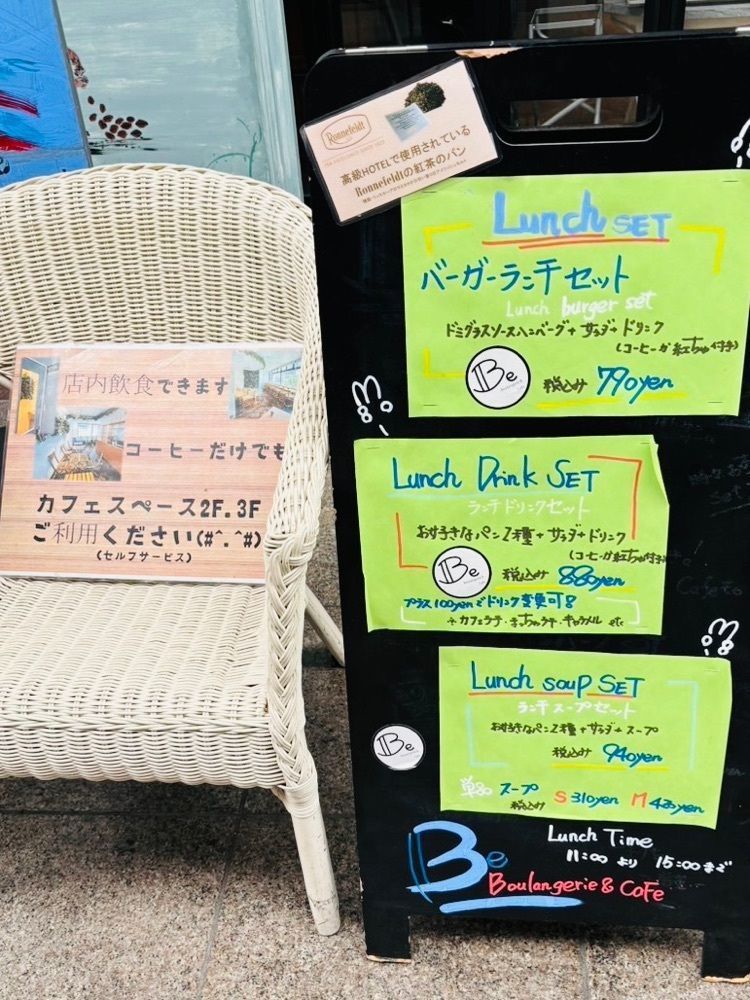 Ronnefeldt
高級HOTELで使用されている
Ronnefeldtの紅茶のパン
Lunch SET
バーガーランチセット
Lunch burger set
ドミグラスソースハンバーグ+サラダ+ドリンク
(コーヒーか紅ちゃ付き)
Be
税込み 790yen
Lunch Drink SET
ランチドリンクセット
お好きなパン2種+サラダ+ドリンク
(コーヒーか紅ちゃ付き)
Be
税込み 880yen
プラス100yenでドリンク変更可8
+カフェラテ・まっちゃラテ・キャラメル etc
Lunch soup SET
ランチスープセット
お好きなパン2種+サラダ+スープ
税込み 940yen
単品 スープ
税込み S 310yen M
Be
Be
Boulangerie & CaFe
Lunch Time
11:00 より 15:00まで
店内飲食できます
コーヒーだけでも
カフェスペース2F.3F
ご利用ください(#^.^#)
(セルフサービス)